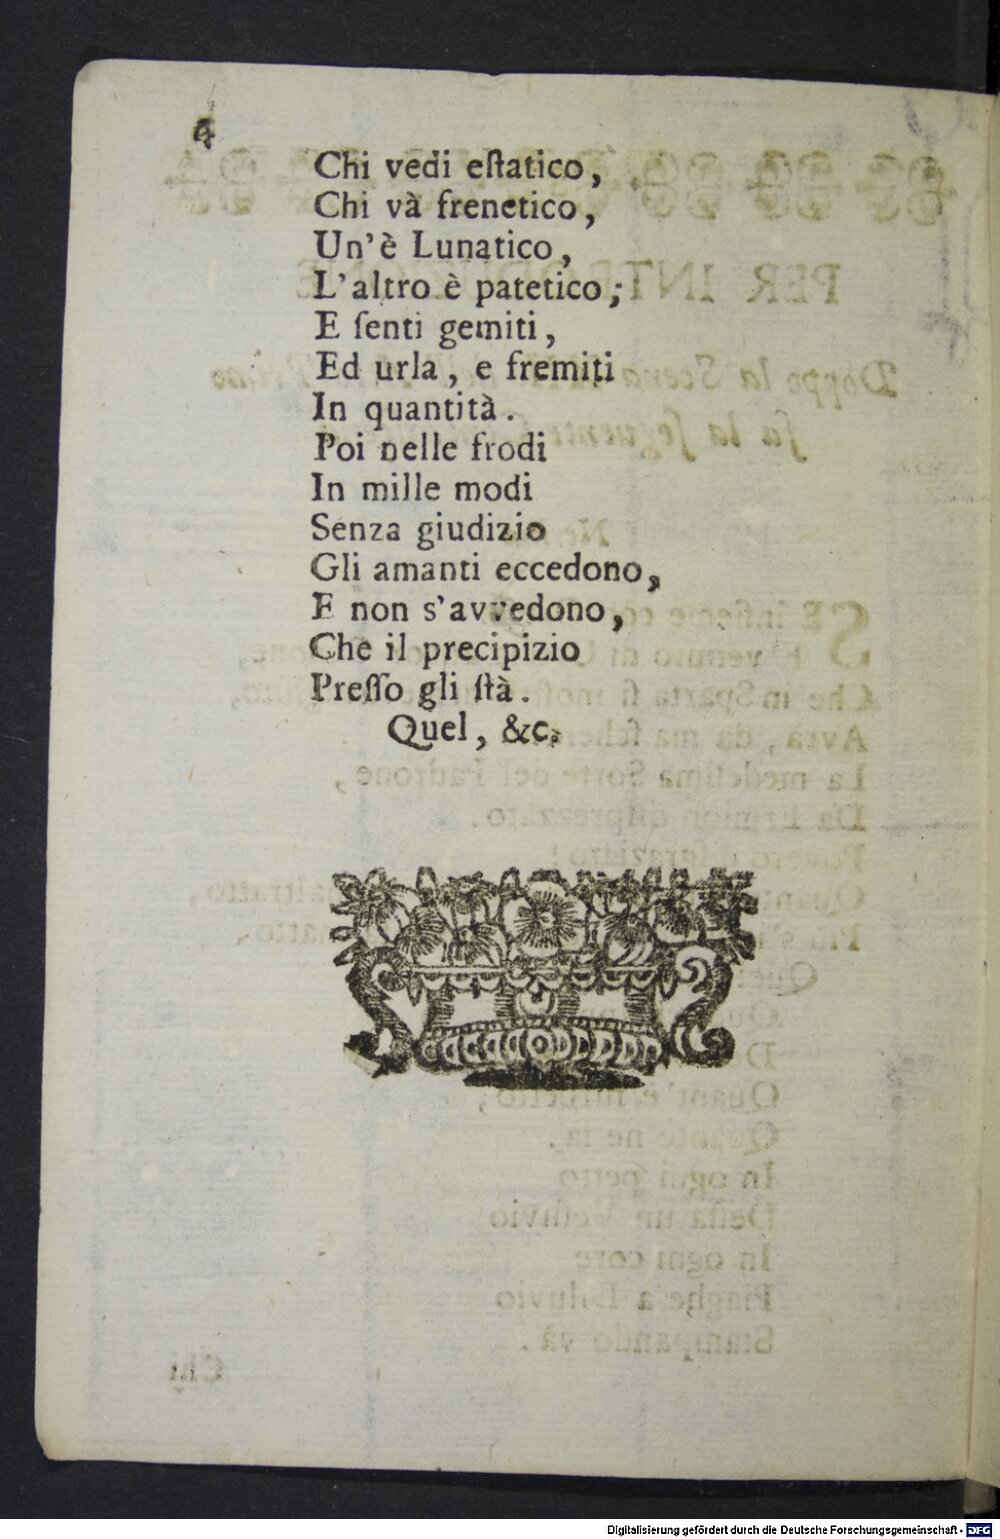 4
Chi vedi eſtatico,
Chi và frenetico,
Un'è Lunatico,
L'altro è patetico;
E ſenti gemiti,
Ed urla, e fremiti
In quantità.
Poi nelle frodi
In mille modi
Senza giudizio
Gli amanti eccedono,
E non s'avvedono,
Che il precipizio
Preſſo gli ſtà.
Quel, &c.
Digitalisierung gefördert durch die Deutsche Forschungsgemeinschaft - DFG